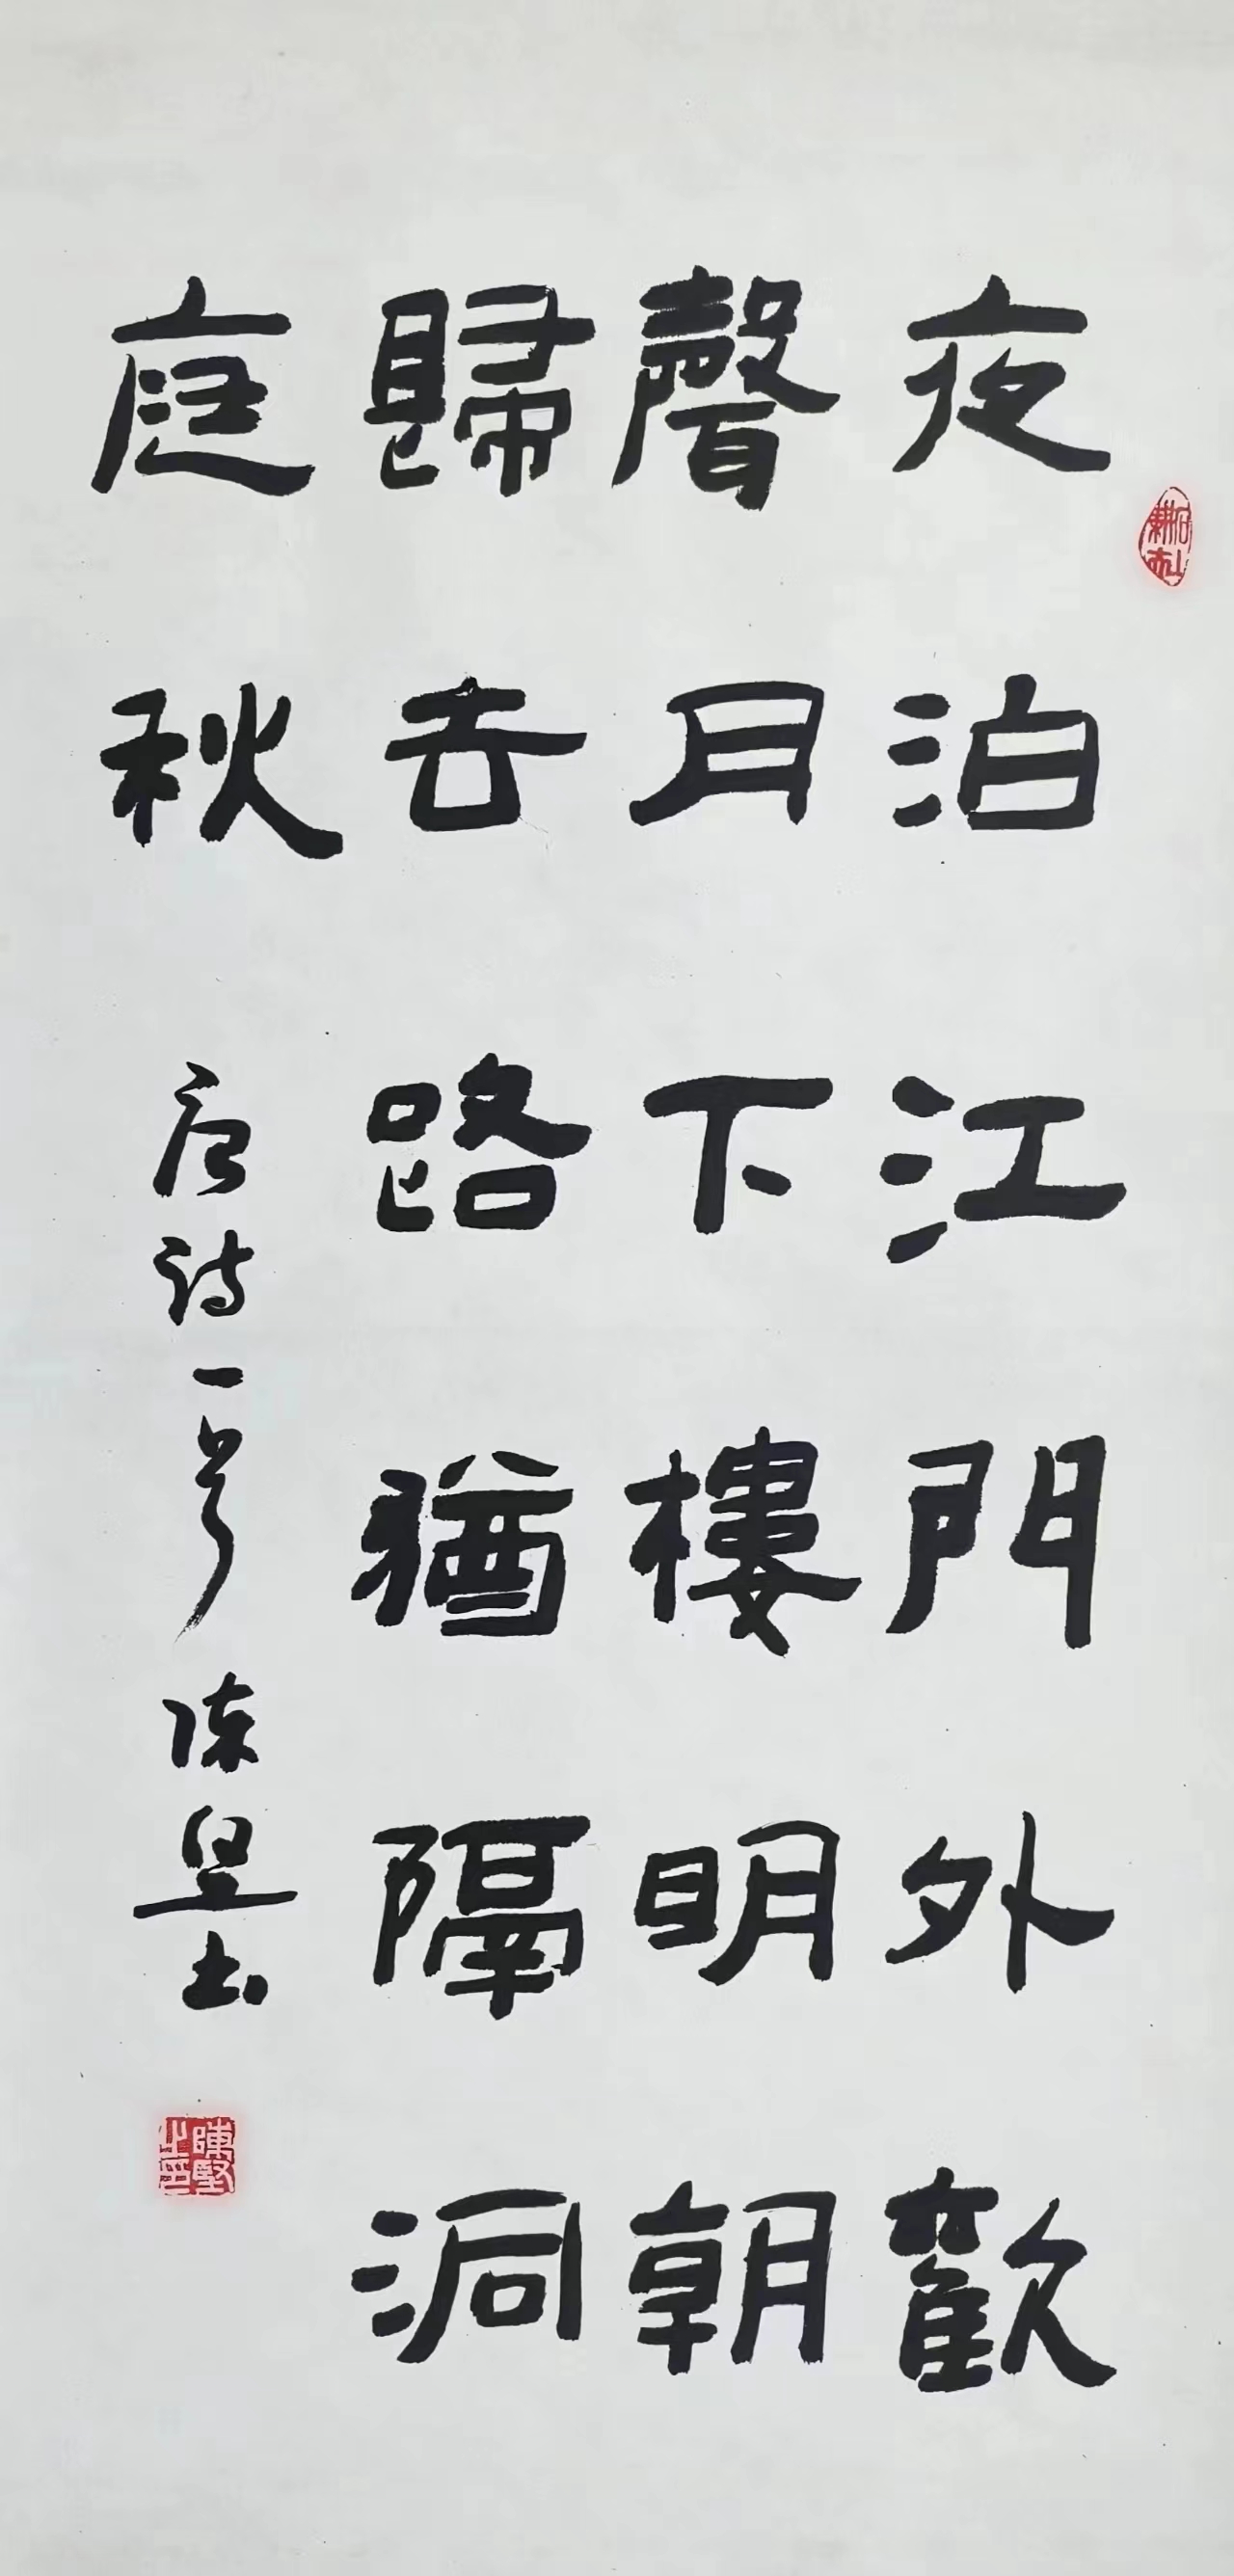 夜泊江門外歡
聲月下樓明朝
歸去路猶隔洞
庭秋
唐詩一首 陳堅書
陳堅之印